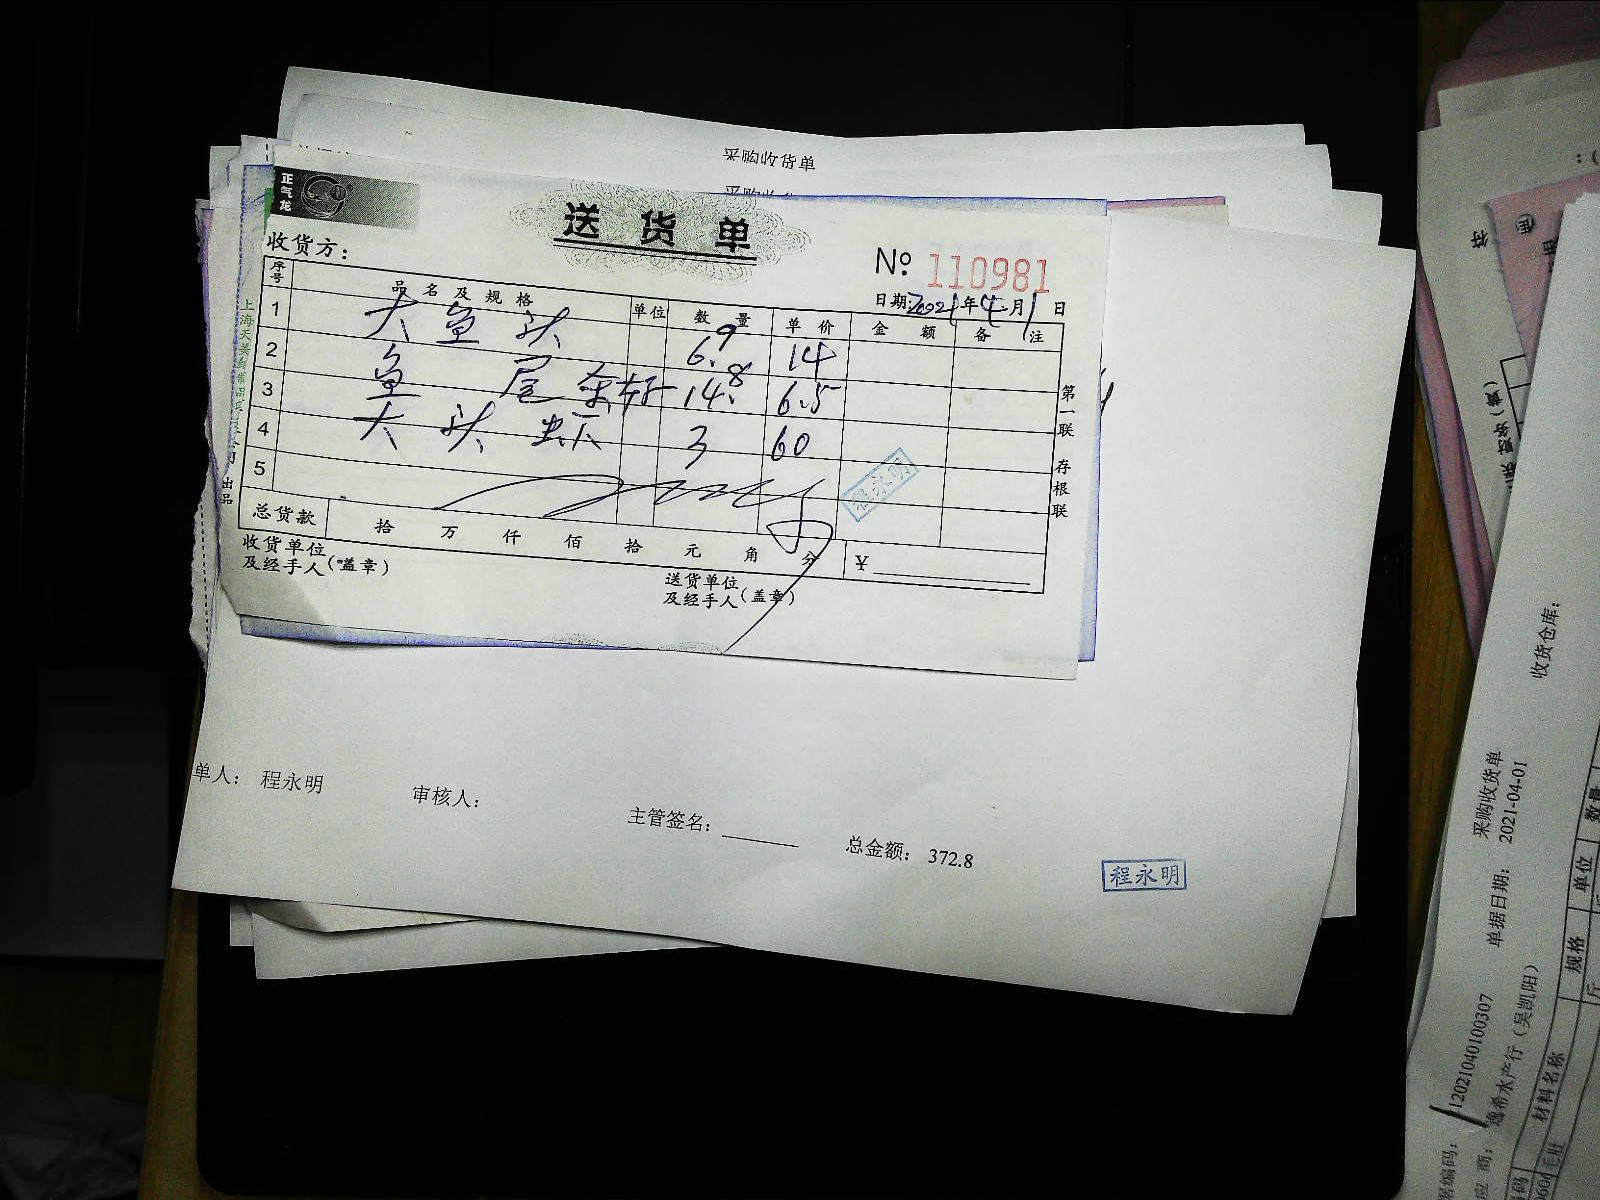 采购收货单
正气龙
送货单
收货方：
№ 110981
日期：2021年4月1日
序号 品名及规格 单位 数量 单价 金额 备注
1 大鱼头 6.9 14
2 鱼尾 14.8 6.5
3 大头虾 3 60
4
5
程永明
总货款 拾 万 仟 佰 拾 元 角 分 ￥
收货单位
及经手人（盖章）
送货单位
及经手人（盖章）
第一联 存根联
出品
单人： 程永明
审核人：
主管签名：
总金额： 372.8
程永明
采购收货单
收货仓库：
单据日期： 2021-04-01
据编码： 1202104010030​7
应商： 逸希水产行（吴凯阳）
材料名称 规格 单位 数量
毛肚 斤